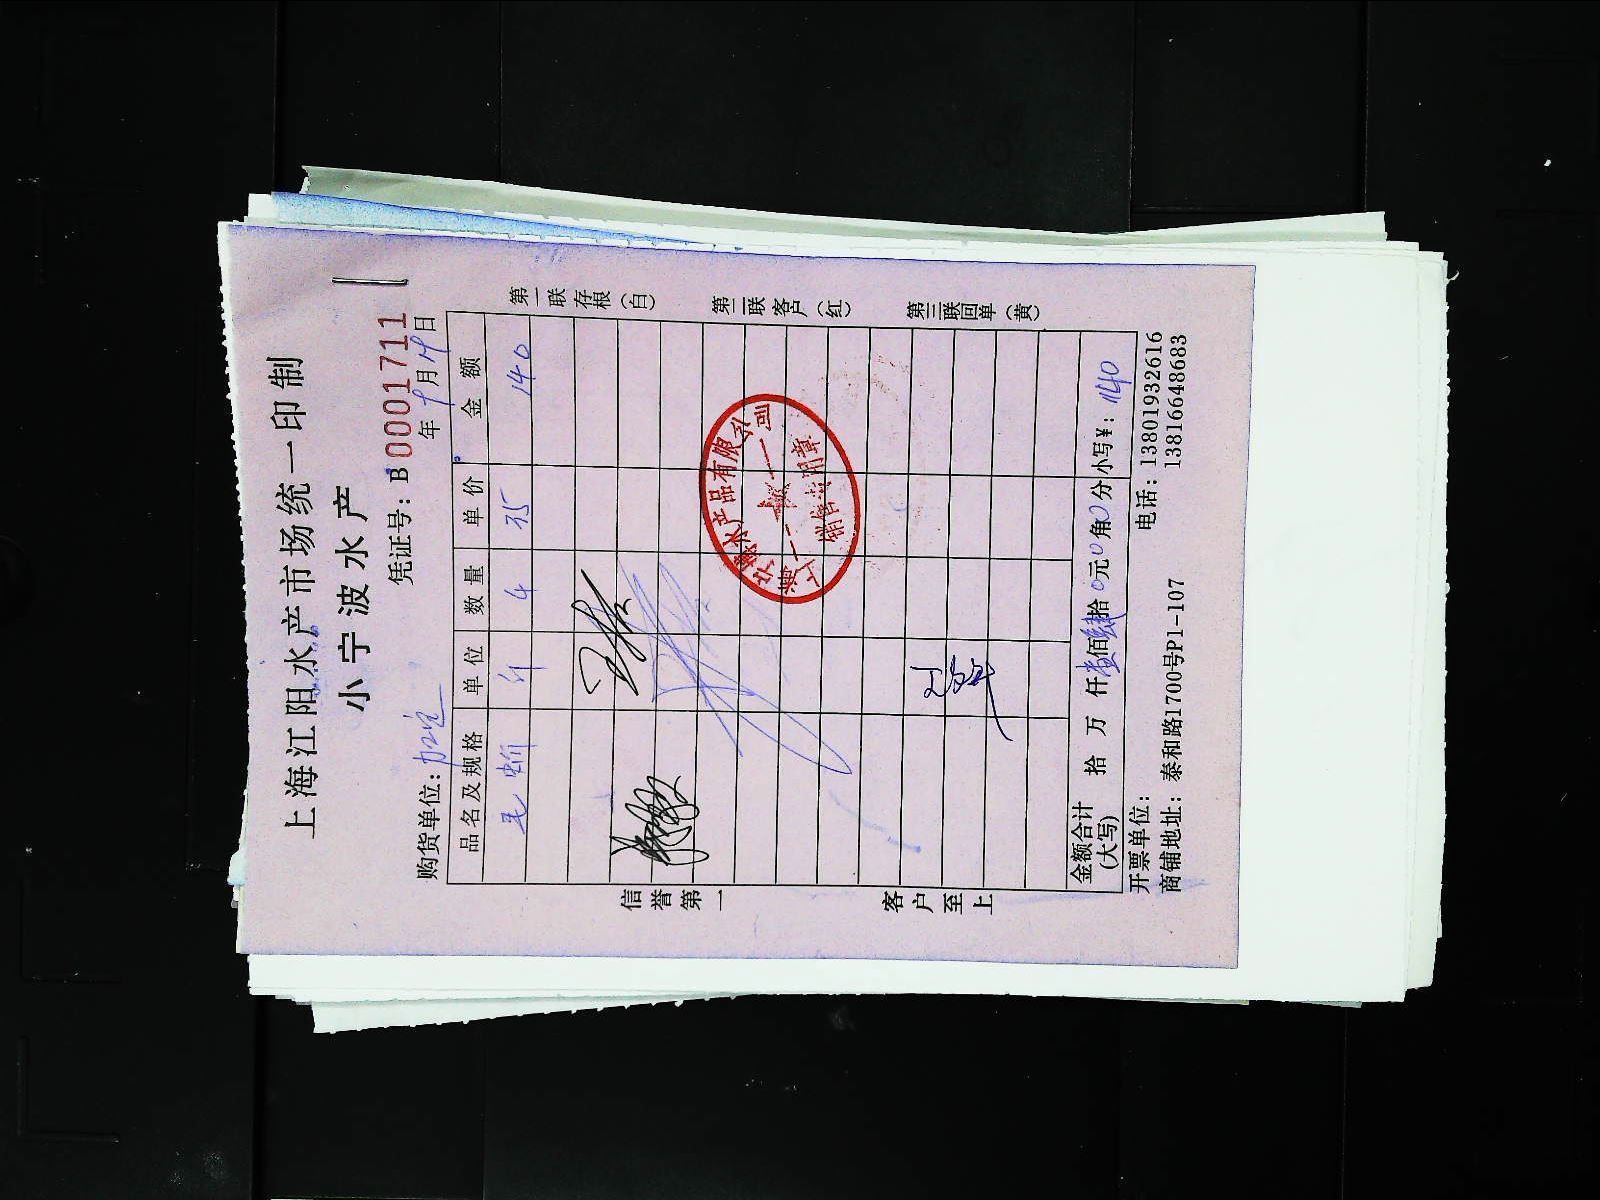 上海江阳水产市场统一印制
小宁波水产
凭证号：B 0001711
购货单位：加定 年9月19日
品名及规格 单位 数量 单价 金额
毛蚶 斤 4 35 140
第一联存根（白）
第二联客户（红）
第三联回单（黄）
信誉第一
客户至上
水产品有限公司
销售专用章
金额合计（大写） 拾 万 仟壹佰肆拾0元0角0分 小写¥：140
开票单位：
电话：13801932616
13816648683
商铺地址：泰和路1700号P1-107